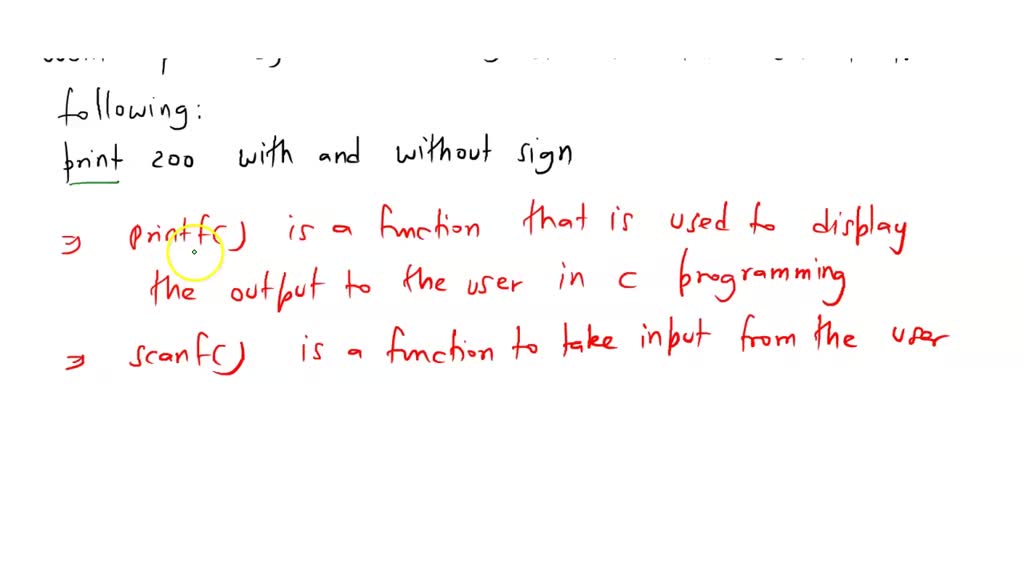 following:
print 200 with and without sign
⇒ printf() is a function that is used to display
the output to the user in c programming
⇒ scanf() is a function to take input from the user